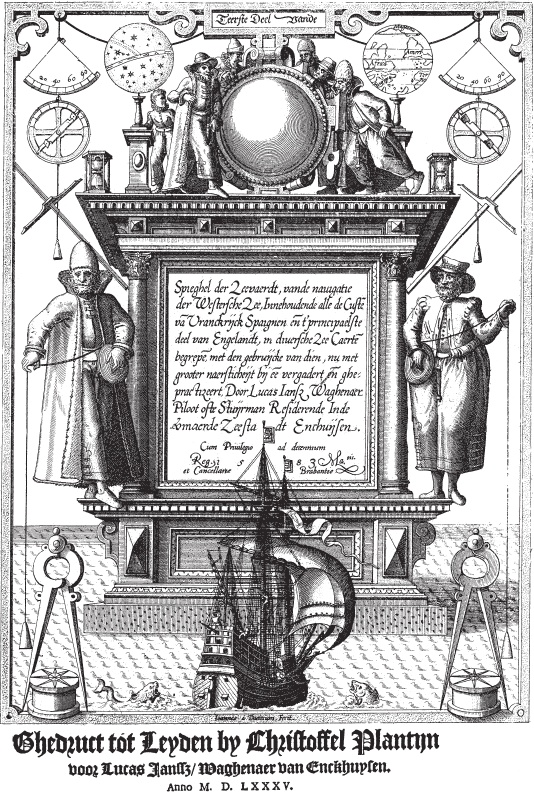 Teerste Deel Vande
20 40 60 90
20 40 60 90
Africa
Spieghel der Zeevaerdt, vande navigatie
der Westersche Zee, Innehoudende alle de Custe
va Vranckrijck Spaignen en t'principaelste
deel van Engelandt, in diversche Zee Caerte
begrepe, met den gebruijcke van dien, nu met
grooter naersticheijt bij ee vergadert en ghe-
practizeert, Door Lucas Iansz Waghenaer
Piloot ofte Stuijrman Residerende Inde
vomaerde Zeestadt Enchuijsen.
Cum Privilegio ad decennium
Reg. 5 8 3
et Cancellarie Brabantie
Ioannes a Doetecum, Fecit.
Ghedruct tot Leyden by Christoffel Plantijn
voor Lucas Janssz/ Waghenaer van Enckhuysen.
Anno M. D. LXXXV.